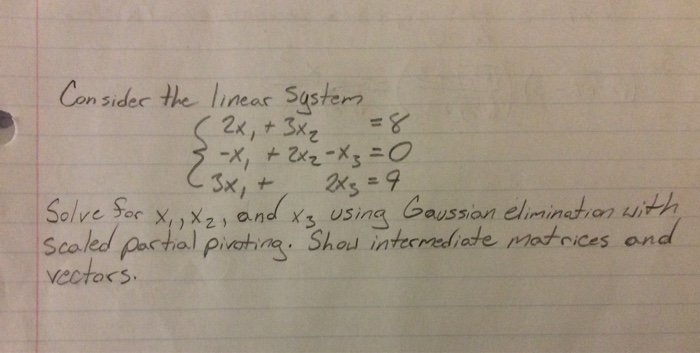 Consider the linear system
2x₁ + 3x₂ = 8
-x₁ + 2x₂ - x₃ = 0
3x₁ + 2x₃ = 9
Solve for x₁, x₂, and x₃ using Gaussian elimination with
scaled partial pivoting. Show intermediate matrices and
vectors.